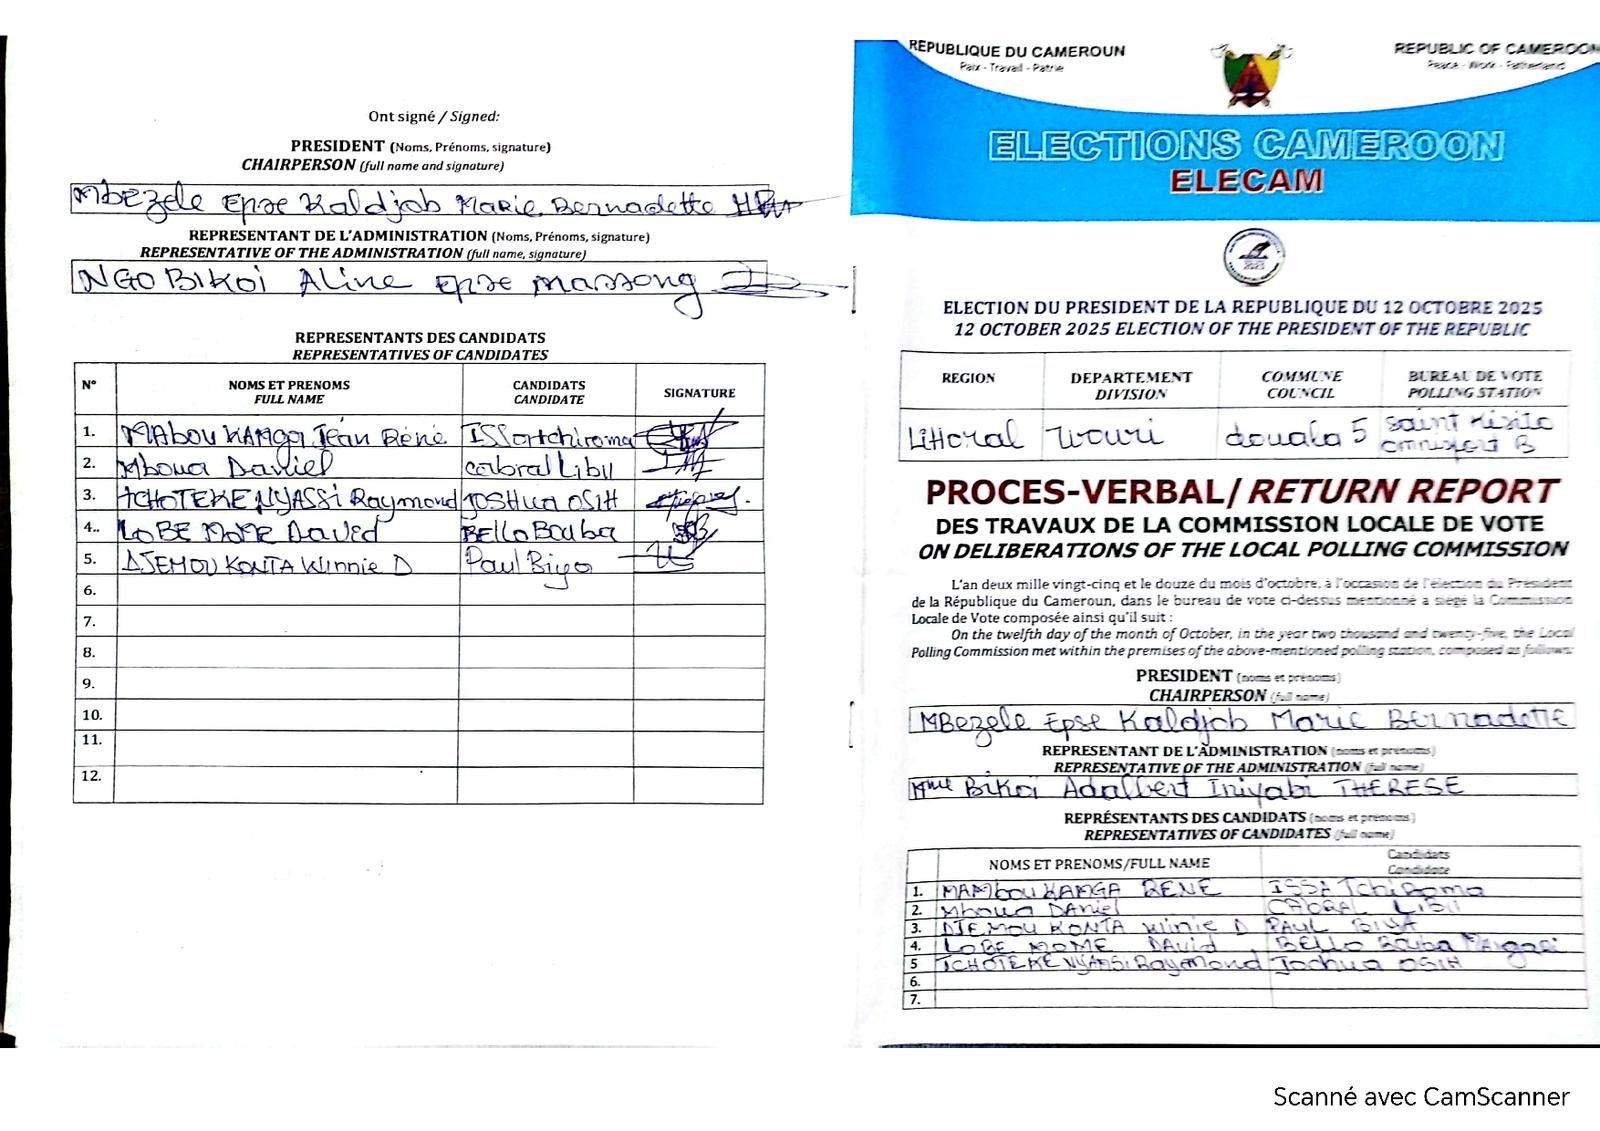 Ont signé / Signed:
PRESIDENT (Noms, Prénoms, signature)
CHAIRPERSON (full name and signature)
Mbezele Epse Kaldjob Marie Bernadette
REPRESENTANT DE L'ADMINISTRATION (Noms, Prénoms, signature)
REPRESENTATIVE OF THE ADMINISTRATION (full name, signature)
NGO BIKOI Aline Epse massong
REPRESENTANTS DES CANDIDATS
REPRESENTATIVES OF CANDIDATES
N° NOMS ET PRENOMS CANDIDATS SIGNATURE
FULL NAME CANDIDATE
1. MABOU KAMGA Jean Réné ISSA tchiroma
2. Mboua Daniel cabral Libii
3. TCHOTEKE NYASSI Raymond JOSHUA OSIH
4.. LOBE MOME David BELLO Bouba
5. DJEMOU KONTA Winnie D Paul Biya
6.
7.
8.
9.
10.
11.
12.
REPUBLIQUE DU CAMEROUN
Paix - Travail - Patrie
REPUBLIC OF CAMEROON
Peace - Work - Fatherland
ELECTIONS CAMEROON
ELECAM
ELECTION DU PRESIDENT DE LA REPUBLIQUE DU 12 OCTOBRE 2025
12 OCTOBER 2025 ELECTION OF THE PRESIDENT OF THE REPUBLIC
REGION DEPARTEMENT COMMUNE BUREAU DE VOTE
DIVISION COUNCIL POLLING STATION
Littoral Wouri douala 5 Saint Kisito
omnisport B
PROCES-VERBAL/ RETURN REPORT
DES TRAVAUX DE LA COMMISSION LOCALE DE VOTE
ON DELIBERATIONS OF THE LOCAL POLLING COMMISSION
L'an deux mille vingt-cinq et le douze du mois d'octobre, à l'occasion de l'élection du Président
de la République du Cameroun, dans le bureau de vote ci-dessus mentionné a siégé la Commission
Locale de Vote composée ainsi qu'il suit :
On the twelfth day of the month of October, in the year two thousand and twenty-five, the Local
Polling Commission met within the premises of the above-mentioned polling station, composed as follows:
PRESIDENT (noms et prénoms)
CHAIRPERSON (full name)
MBezele Epse Kaldjob Marie Bernadette
REPRESENTANT DE L'ADMINISTRATION (noms et prénoms)
REPRESENTATIVE OF THE ADMINISTRATION (full name)
Mme Bikoi Adalbert Iniyabi THERESE
REPRÉSENTANTS DES CANDIDATS (noms et prénoms)
REPRESENTATIVES OF CANDIDATES (full name)
NOMS ET PRENOMS/FULL NAME Candidats
Candidate
1. MAMbou KAMGA RENE ISSA Tchiroma
2. Mboua DANiel CABRAL LiBii
3. DJEMOU KONTA Winie D PAUL BIYA
4. LOBE MOME DAvid BELLO Bouba Maigari
5 TCHOTEKE NYASSI Raymond Joshua OSIH
6.
7.
Scanné avec CamScanner